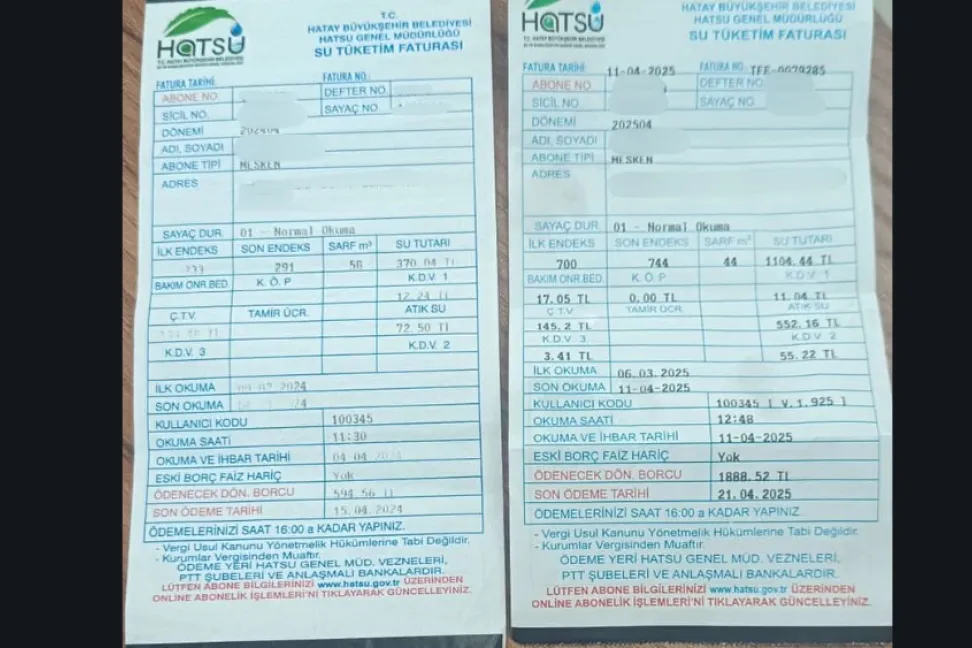 HATSU
T.C. HATAY BÜYÜKŞEHİR BELEDİYESİ
T.C.
HATAY BÜYÜKŞEHİR BELEDİYESİ
HATSU GENEL MÜDÜRLÜĞÜ
SU TÜKETİM FATURASI
FATURA TARİHİ: FATURA NO:
ABONE NO. DEFTER NO.
SİCİL NO. SAYAÇ NO.
DÖNEMİ 202404
ADI, SOYADI
ABONE TİPİ MESKEN
ADRES
SAYAÇ DUR. 01 - Normal Okuma
İLK ENDEKS SON ENDEKS SARF m³ SU TUTARI
291 58 370.04 TL
BAKIM ONR.BED. K. Ö. P K.D.V. 1
12.24 TL
Ç.T.V. TAMİR ÜCR. ATIK SU
72.50 TL
K.D.V. 3 K.D.V. 2
İLK OKUMA 2024
SON OKUMA
KULLANICI KODU 100345
OKUMA SAATİ 11:30
OKUMA VE İHBAR TARİHİ 04-04-2024
ESKİ BORÇ FAİZ HARİÇ Yok
ÖDENECEK DÖN. BORCU 594.56 TL
SON ÖDEME TARİHİ 15.04.2024
ÖDEMELERİNİZİ SAAT 16:00 a KADAR YAPINIZ.
- Vergi Usul Kanunu Yönetmelik Hükümlerine Tabi Değildir.
- Kurumlar Vergisinden Muaftır.
ÖDEME YERİ HATSU GENEL MÜD. VEZNELERİ,
PTT ŞUBELERİ VE ANLAŞMALI BANKALARDIR.
LÜTFEN ABONE BİLGİLERİNİZİ www.hatsu.gov.tr ÜZERİNDEN
ONLINE ABONELİK İŞLEMLERİ'Nİ TIKLAYARAK GÜNCELLEYİNİZ.
HATSU
HATAY BÜYÜKŞEHİR BELEDİYESİ
HATSU GENEL MÜDÜRLÜĞÜ
SU TÜKETİM FATURASI
FATURA TARİHİ: 11-04-2025 FATURA NO: TFF-0079285
ABONE NO. DEFTER NO.
SİCİL NO. SAYAÇ NO.
DÖNEMİ 202504
ADI, SOYADI
ABONE TİPİ MESKEN
ADRES
SAYAÇ DUR. 01 - Normal Okuma
İLK ENDEKS SON ENDEKS SARF m³ SU TUTARI
700 744 44 1104.44 TL
BAKIM ONR.BED. K. Ö. P K.D.V. 1
17.05 TL 0.00 TL 11.04 TL
Ç.T.V. TAMİR ÜCR. ATIK SU
145.2 TL 552.16 TL
K.D.V. 3 K.D.V. 2
3.41 TL 55.22 TL
İLK OKUMA 06.03.2025
SON OKUMA 11-04-2025
KULLANICI KODU 100345 [ V.1.925 ]
OKUMA SAATİ 12:48
OKUMA VE İHBAR TARİHİ 11-04-2025
ESKİ BORÇ FAİZ HARİÇ Yok
ÖDENECEK DÖN. BORCU 1888.52 TL
SON ÖDEME TARİHİ 21.04.2025
ÖDEMELERİNİZİ SAAT 16:00 a KADAR YAPINIZ.
- Vergi Usul Kanunu Yönetmelik Hükümlerine Tabi Değildir.
- Kurumlar Vergisinden Muaftır.
ÖDEME YERİ HATSU GENEL MÜD. VEZNELERİ,
PTT ŞUBELERİ VE ANLAŞMALI BANKALARDIR.
LÜTFEN ABONE BİLGİLERİNİZİ www.hatsu.gov.tr ÜZERİNDEN
ONLINE ABONELİK İŞLEMLERİ'Nİ TIKLAYARAK GÜNCELLEYİNİZ.